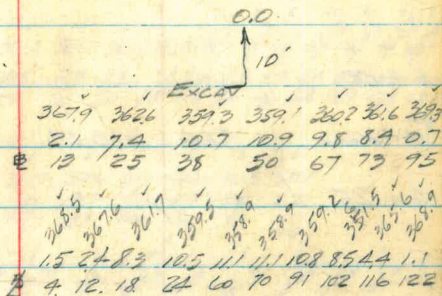 0.0
10'
EXCAV
367.9 362.6 359.3 359.1 360.2 361.6 369.3
2.1 7.4 10.7 10.9 9.8 8.4 0.7
13 25 38 50 67 73 95
368.5 367.6 361.7 359.5 358.9 358.9 359.2 365.6 368.9
1.5 2.4 8.3 10.5 11.1 11.1 10.8 8.5 4.4 1.1
4 12 18 24 60 70 91 102 116 122